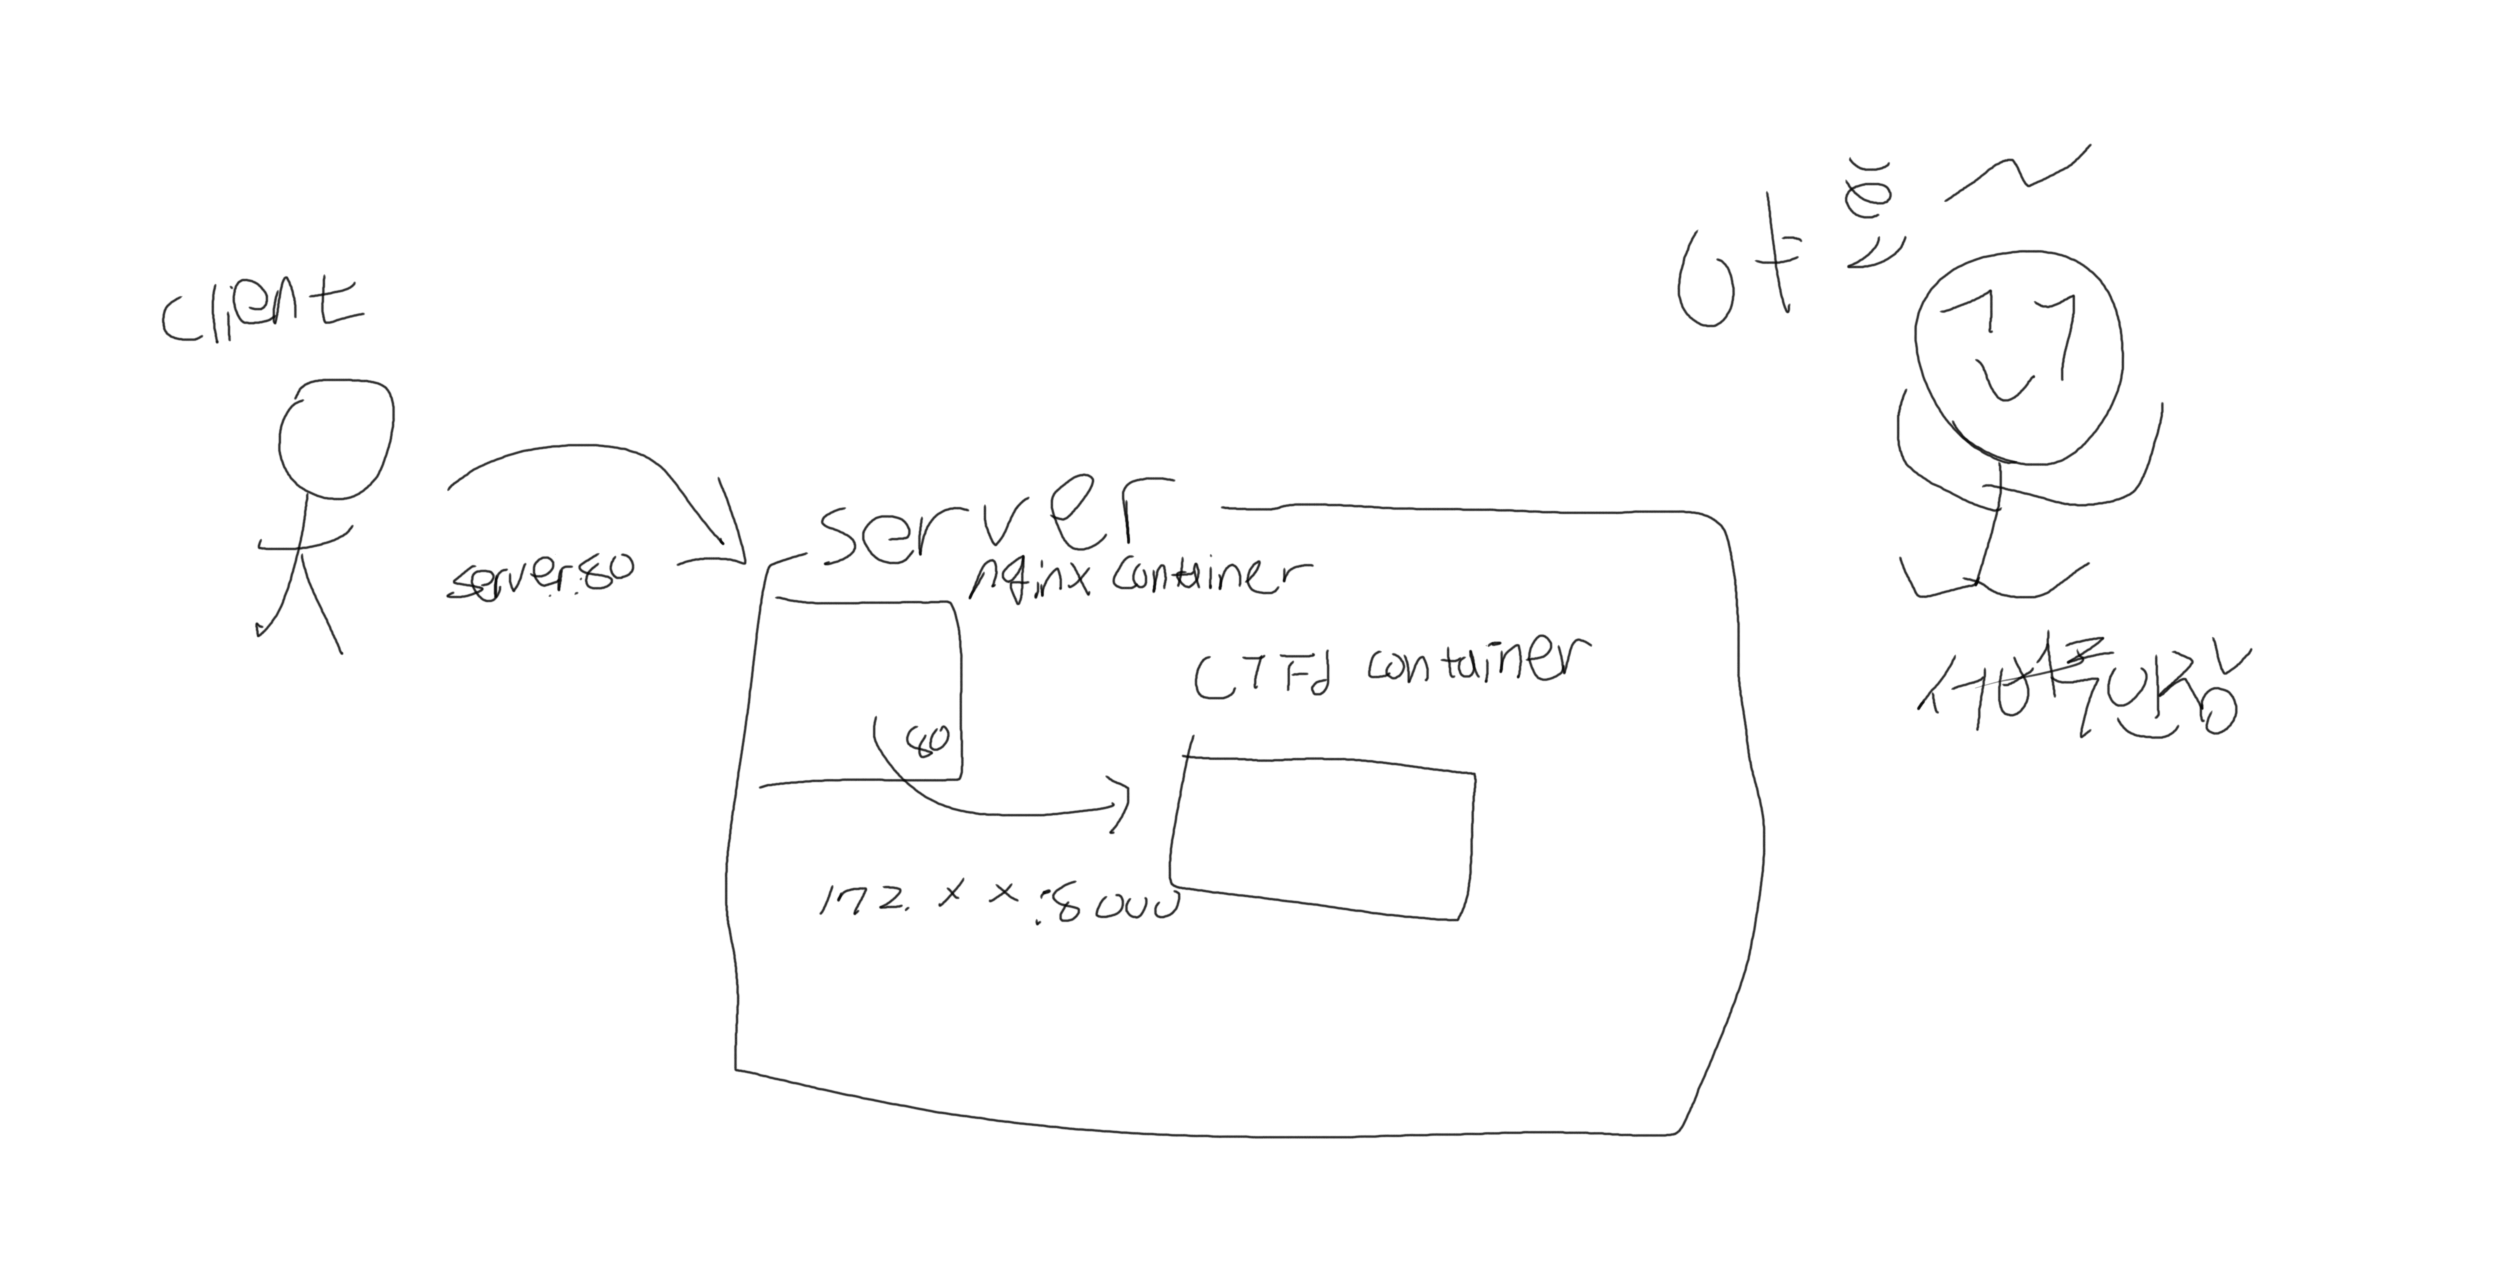 야호~
client
server
server:80
nginx container
CTFd container
80
172. x x :8000